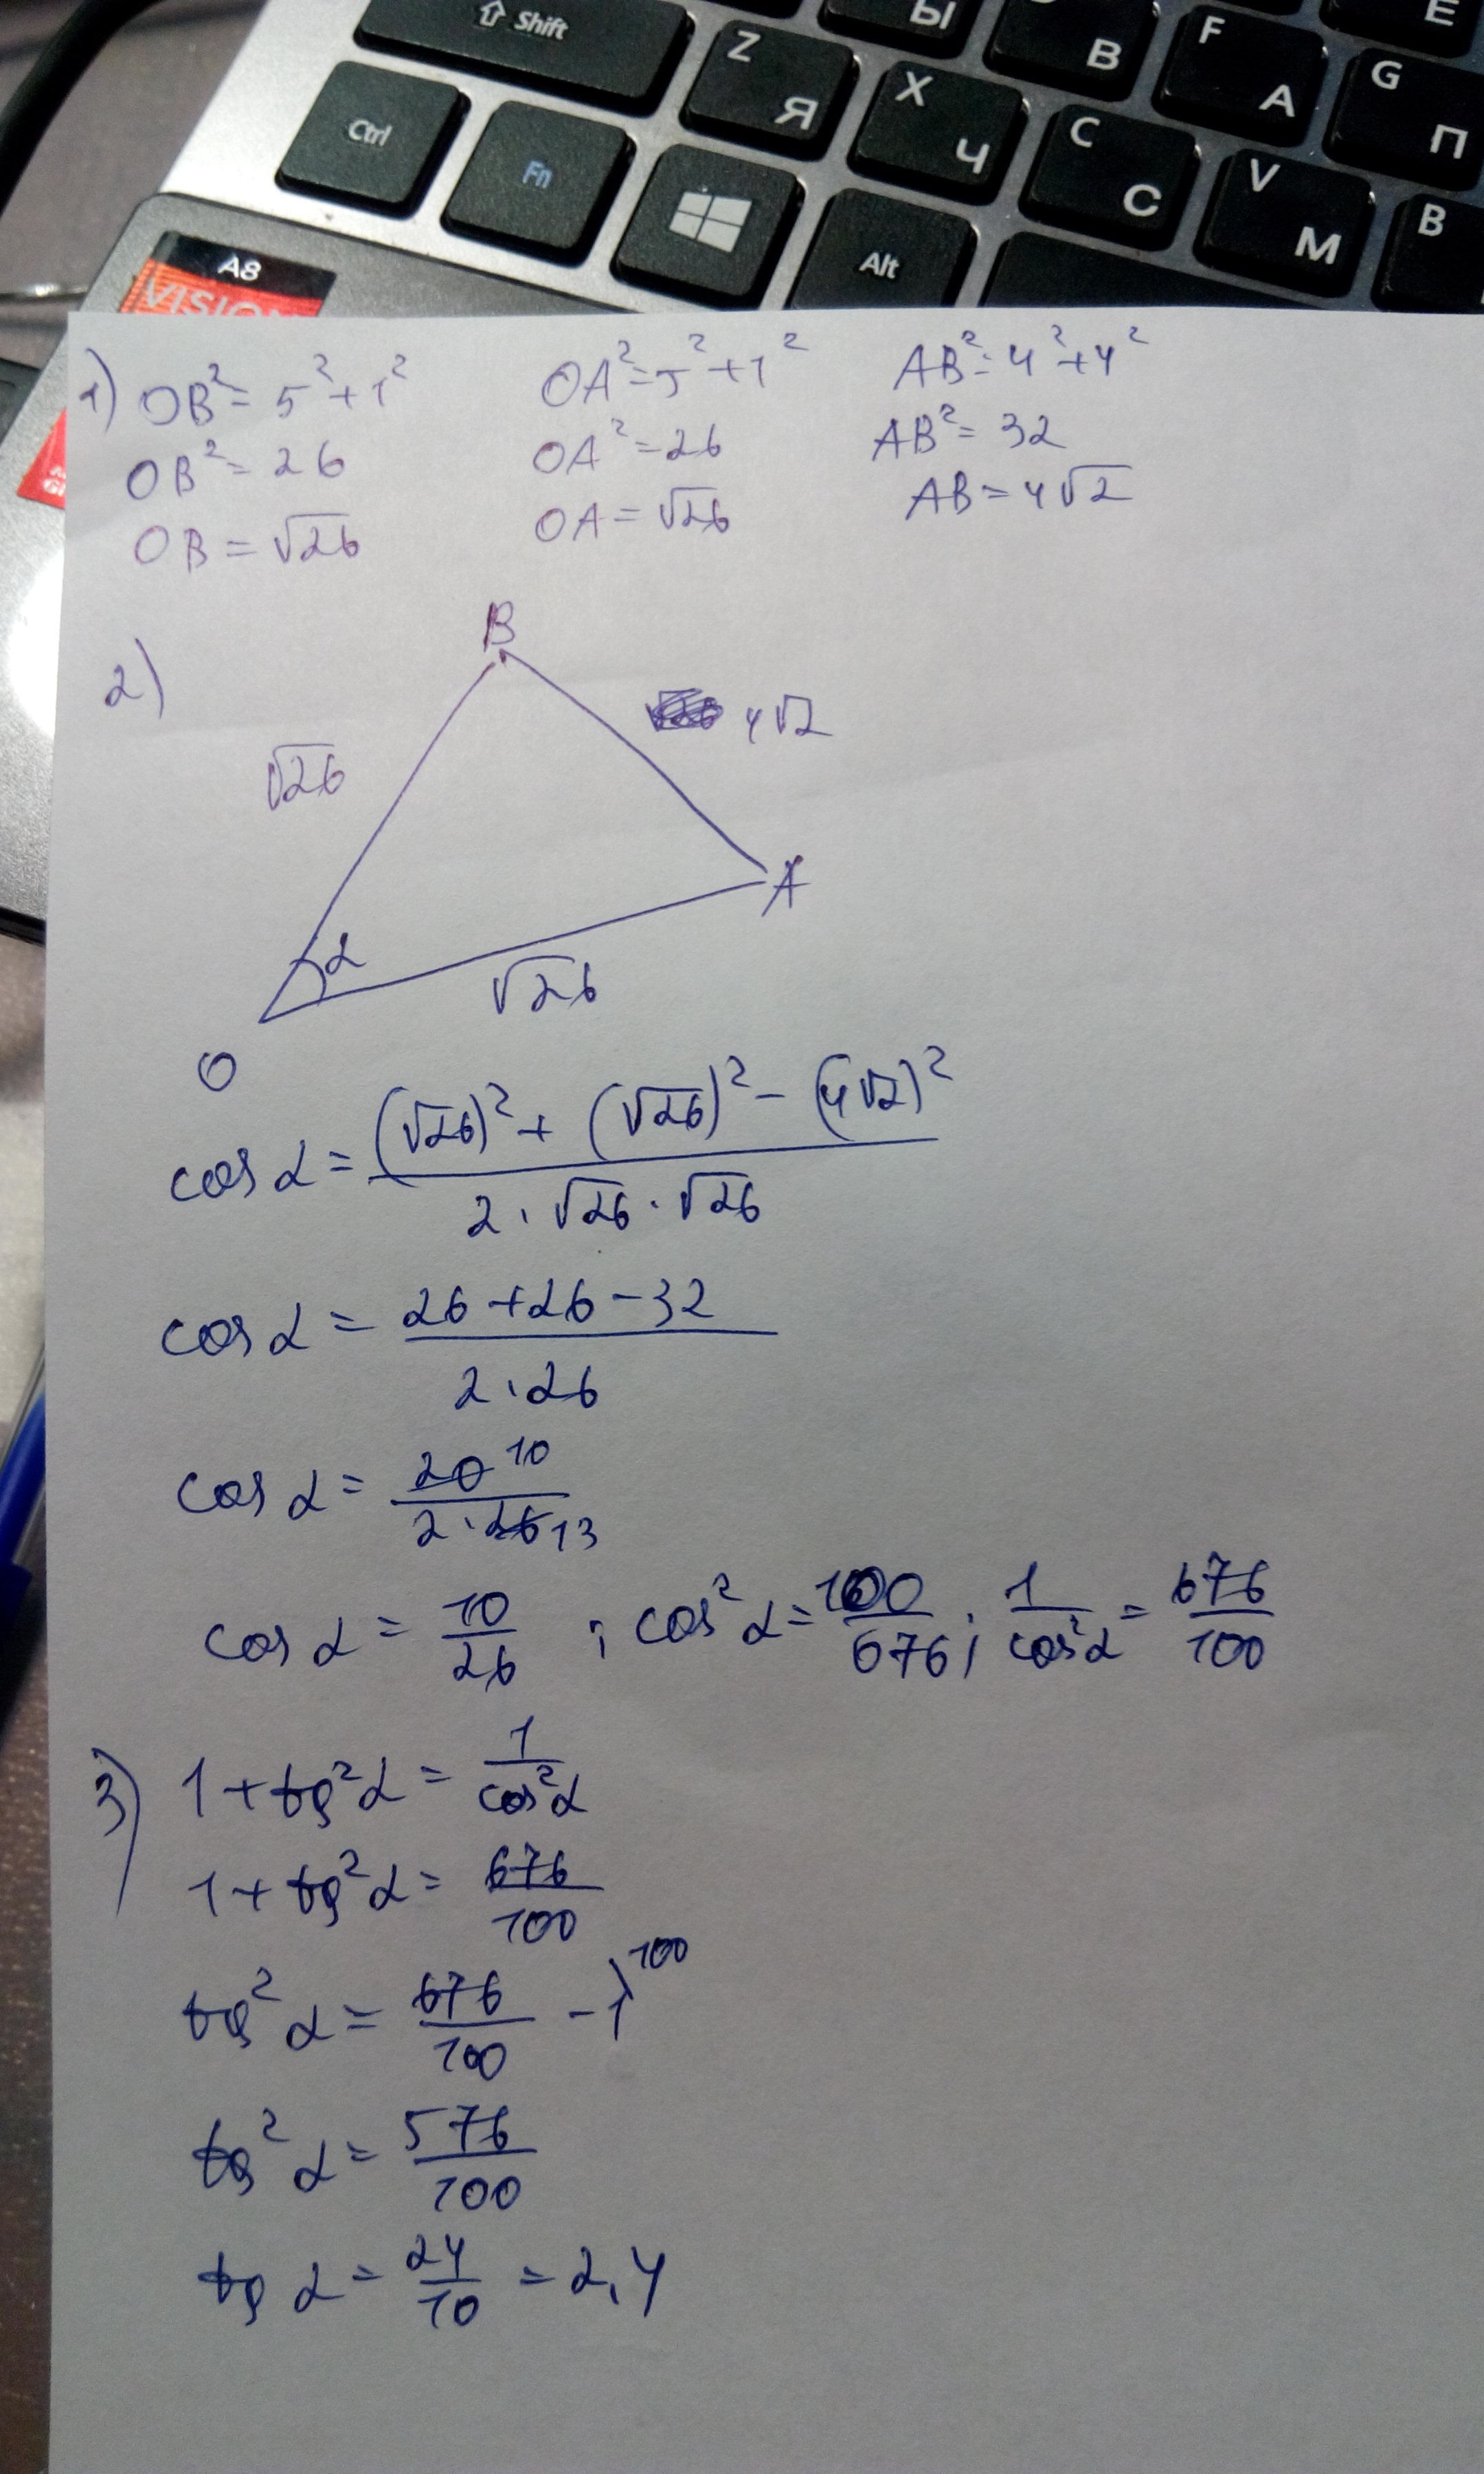 Shift Z Я X Ч Ы В F А G П Е
Ctrl Fn Alt C С V М B
A8
VISION
1) OB² = 5² + 1² OA² = 5² + 1² AB² = 4² + 4²
OB² = 26 OA² = 26 AB² = 32
OB = √26 OA = √26 AB = 4√2
2)
B
4√2
√26
A
α
√26
O
cos α = ((√26)² + (√26)² - (4√2)²) / (2 · √26 · √26)
cos α = (26 + 26 - 32) / (2 · 26)
cos α = 20 10 / 2 · 26 13
cos α = 10/26 ; cos² α = 100/676 ; 1/cos² α = 676/100
3) 1 + tg² α = 1/cos² α
1 + tg² α = 676/100
tg² α = 676/100 - 1 100
tg² α = 576/100
tg α = 24/10 = 2,4